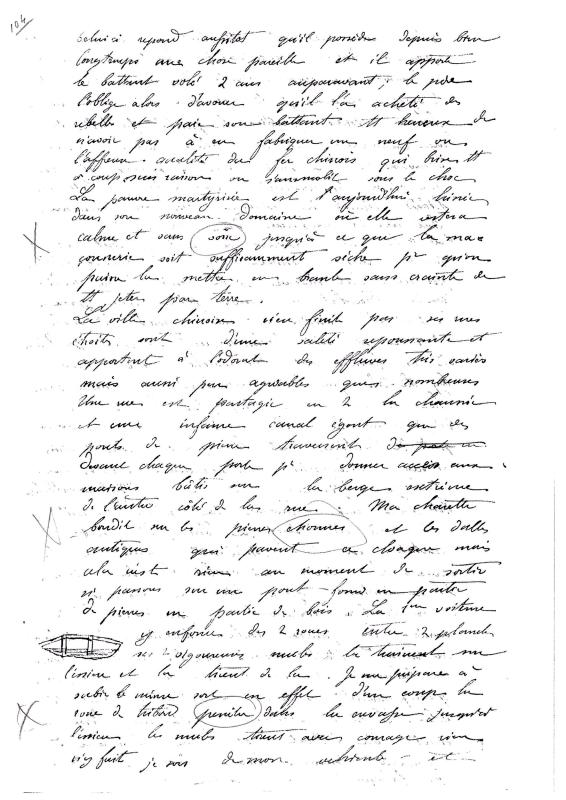 104
celui ci repond aussitot qu'il possède depuis bien
longtemps une chose pareille et il apporte
le battant volé 2 ans auparavant ; le père
l'oblige alors d'avouer qu'il l'a acheté des
rebelle et paie son battant tt heureux de
n'avoir pas à en fabriquer un neuf vu
l'affreuse qualité du fer chinois qui brise tt
sous le choc
La pauvre martyrisée est aujourd'hui
dans son nouveau domaine où elle restera
calme et sans voix jusqu'à ce que la ma=
çonnerie soit suffisamment sèche pr qu'on
puisse la mettre en branle sans crainte de
tt jeter par terre.
La ville chinoise n'en finit pas ses rues
étroites sont d'une saleté repoussante et
apportent à l'odorat des effluves très variés
mais aussi peu agréables que nombreuses
Une rue est partagée en 2 la chaussée
et une infame canal égout que des
ponts de pierre traversent
devant chaque porte pr donner accès aux
maisons bâties sur la berge
de l'autre côté de la rue. Ma charette
bondit sur les pierres énormes et les dalles
antiques qui pavent mais
cela n'est rien au moment de sortir
ns passons sur un pont fond en partie
de pierres en partie de bois. La 1ère voiture
y enfonce des 2 roues entre 2 planches
ses 2 vigoureux mules la traînent sur
l'essieu et la tirent de là. Je me prépare à
subir le même sort en effet d'un coup la
roue de tribord pénètre dans la crevasse jusqu'à
l'essieu les mules tirent avec courage rien
n'y fait je sors de mon véhicule et